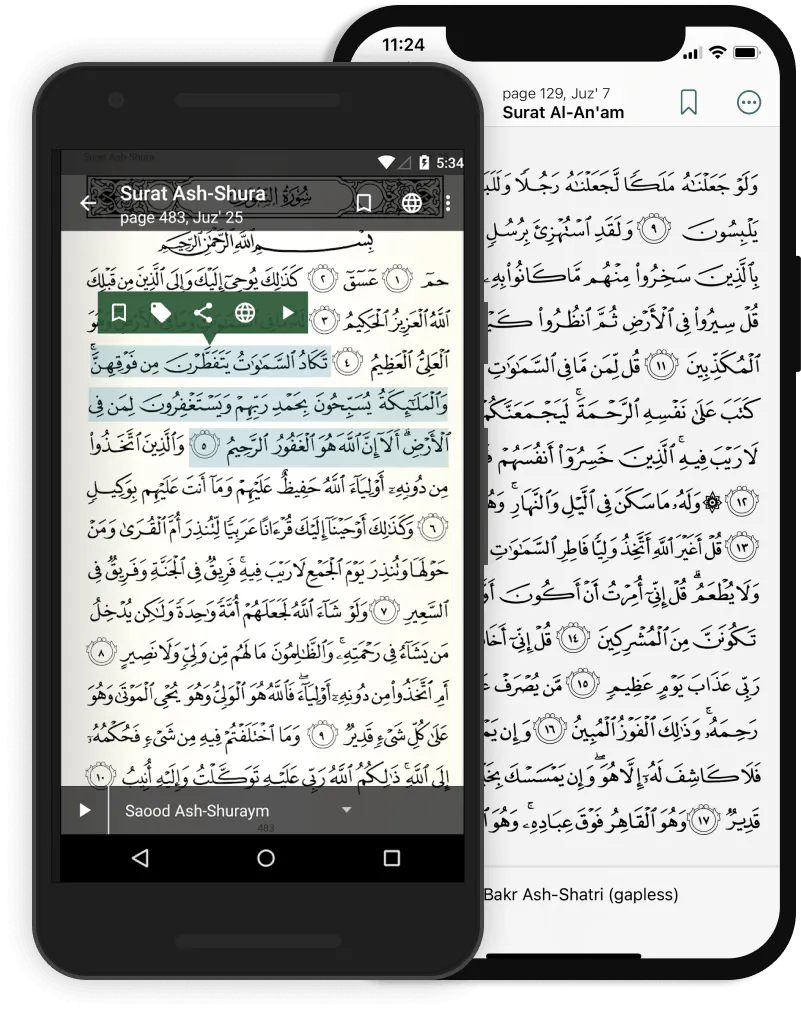 5:34
Surat Ash-Shura
page 483, Juz' 25
بِسْمِ ٱللَّهِ ٱلرَّحْمَٰنِ ٱلرَّحِيمِ
حمٓ ١ عٓسٓقٓ ٢ كَذَٰلِكَ يُوحِىٓ إِلَيْكَ وَإِلَى ٱلَّذِينَ مِن قَبْلِكَ
ٱللَّهُ ٱلْعَزِيزُ ٱلْحَكِيمُ ٣
ٱلْعَلِىُّ ٱلْعَظِيمُ ٤ تَكَادُ ٱلسَّمَٰوَٰتُ يَتَفَطَّرْنَ مِن فَوْقِهِنَّ ۚ
وَٱلْمَلَٰٓئِكَةُ يُسَبِّحُونَ بِحَمْدِ رَبِّهِمْ وَيَسْتَغْفِرُونَ لِمَن فِى
ٱلْأَرْضِ ۗ أَلَآ إِنَّ ٱللَّهَ هُوَ ٱلْغَفُورُ ٱلرَّحِيمُ ٥ وَٱلَّذِينَ ٱتَّخَذُوا۟
مِن دُونِهِۦٓ أَوْلِيَآءَ ٱللَّهُ حَفِيظٌ عَلَيْهِمْ وَمَآ أَنتَ عَلَيْهِم بِوَكِيلٍ
٦ وَكَذَٰلِكَ أَوْحَيْنَآ إِلَيْكَ قُرْءَانًا عَرَبِيًّا لِّتُنذِرَ أُمَّ ٱلْقُرَىٰ وَمَنْ
حَوْلَهَا وَتُنذِرَ يَوْمَ ٱلْجَمْعِ لَا رَيْبَ فِيهِ ۚ فَرِيقٌ فِى ٱلْجَنَّةِ وَفَرِيقٌ فِى
ٱلسَّعِيرِ ٧ وَلَوْ شَآءَ ٱللَّهُ لَجَعَلَهُمْ أُمَّةً وَٰحِدَةً وَلَٰكِن يُدْخِلُ
مَن يَشَآءُ فِى رَحْمَتِهِۦ ۚ وَٱلظَّٰلِمُونَ مَا لَهُم مِّن وَلِىٍّ وَلَا نَصِيرٍ ٨
أَمِ ٱتَّخَذُوا۟ مِن دُونِهِۦٓ أَوْلِيَآءَ ۖ فَٱللَّهُ هُوَ ٱلْوَلِىُّ وَهُوَ يُحْىِ ٱلْمَوْتَىٰ وَهُوَ
عَلَىٰ كُلِّ شَىْءٍ قَدِيرٌ ٩ وَمَا ٱخْتَلَفْتُمْ فِيهِ مِن شَىْءٍ فَحُكْمُهُۥٓ
إِلَى ٱللَّهِ ۚ ذَٰلِكُمُ ٱللَّهُ رَبِّى عَلَيْهِ تَوَكَّلْتُ وَإِلَيْهِ أُنِيبُ ١٠
Saood Ash-Shuraym
483
11:24
page 129, Juz' 7
Surat Al-An'am
وَلَوْ جَعَلْنَٰهُ مَلَكًا لَّجَعَلْنَٰهُ رَجُلًا
يَلْبِسُونَ ٩ وَلَقَدِ ٱسْتُهْزِئَ بِرُسُلٍ
بِٱلَّذِينَ سَخِرُوا۟ مِنْهُم مَّا كَانُوا۟ بِهِۦ
قُلْ سِيرُوا۟ فِى ٱلْأَرْضِ ثُمَّ ٱنظُرُوا۟
ٱلْمُكَذِّبِينَ ١١ قُل لِّمَن مَّا فِى ٱلسَّمَٰوَٰتِ
كَتَبَ عَلَىٰ نَفْسِهِ ٱلرَّحْمَةَ ۚ لَيَجْمَعَنَّكُمْ
لَا رَيْبَ فِيهِ ۚ ٱلَّذِينَ خَسِرُوٓا۟ أَنفُسَهُمْ
١٢ ۞ وَلَهُۥ مَا سَكَنَ فِى ٱلَّيْلِ وَٱلنَّهَارِ ۚ
١٣ قُلْ أَغَيْرَ ٱللَّهِ أَتَّخِذُ وَلِيًّا فَاطِرِ ٱلسَّمَٰوَٰتِ
وَلَا يُطْعَمُ ۗ قُلْ إِنِّىٓ أُمِرْتُ أَنْ أَكُونَ
تَكُونَنَّ مِنَ ٱلْمُشْرِكِينَ ١٤ قُلْ إِنِّىٓ
رَبِّى عَذَابَ يَوْمٍ عَظِيمٍ ١٥ مَّن يُصْرَفْ
رَحِمَهُۥ ۚ وَذَٰلِكَ ٱلْفَوْزُ ٱلْمُبِينُ ١٦ وَإِن
فَلَا كَاشِفَ لَهُۥٓ إِلَّا هُوَ ۖ وَإِن يَمْسَسْكَ
قَدِيرٌ ١٧ وَهُوَ ٱلْقَاهِرُ فَوْقَ عِبَادِهِۦ ۚ وَهُوَ
Bakr Ash-Shatri (gapless)